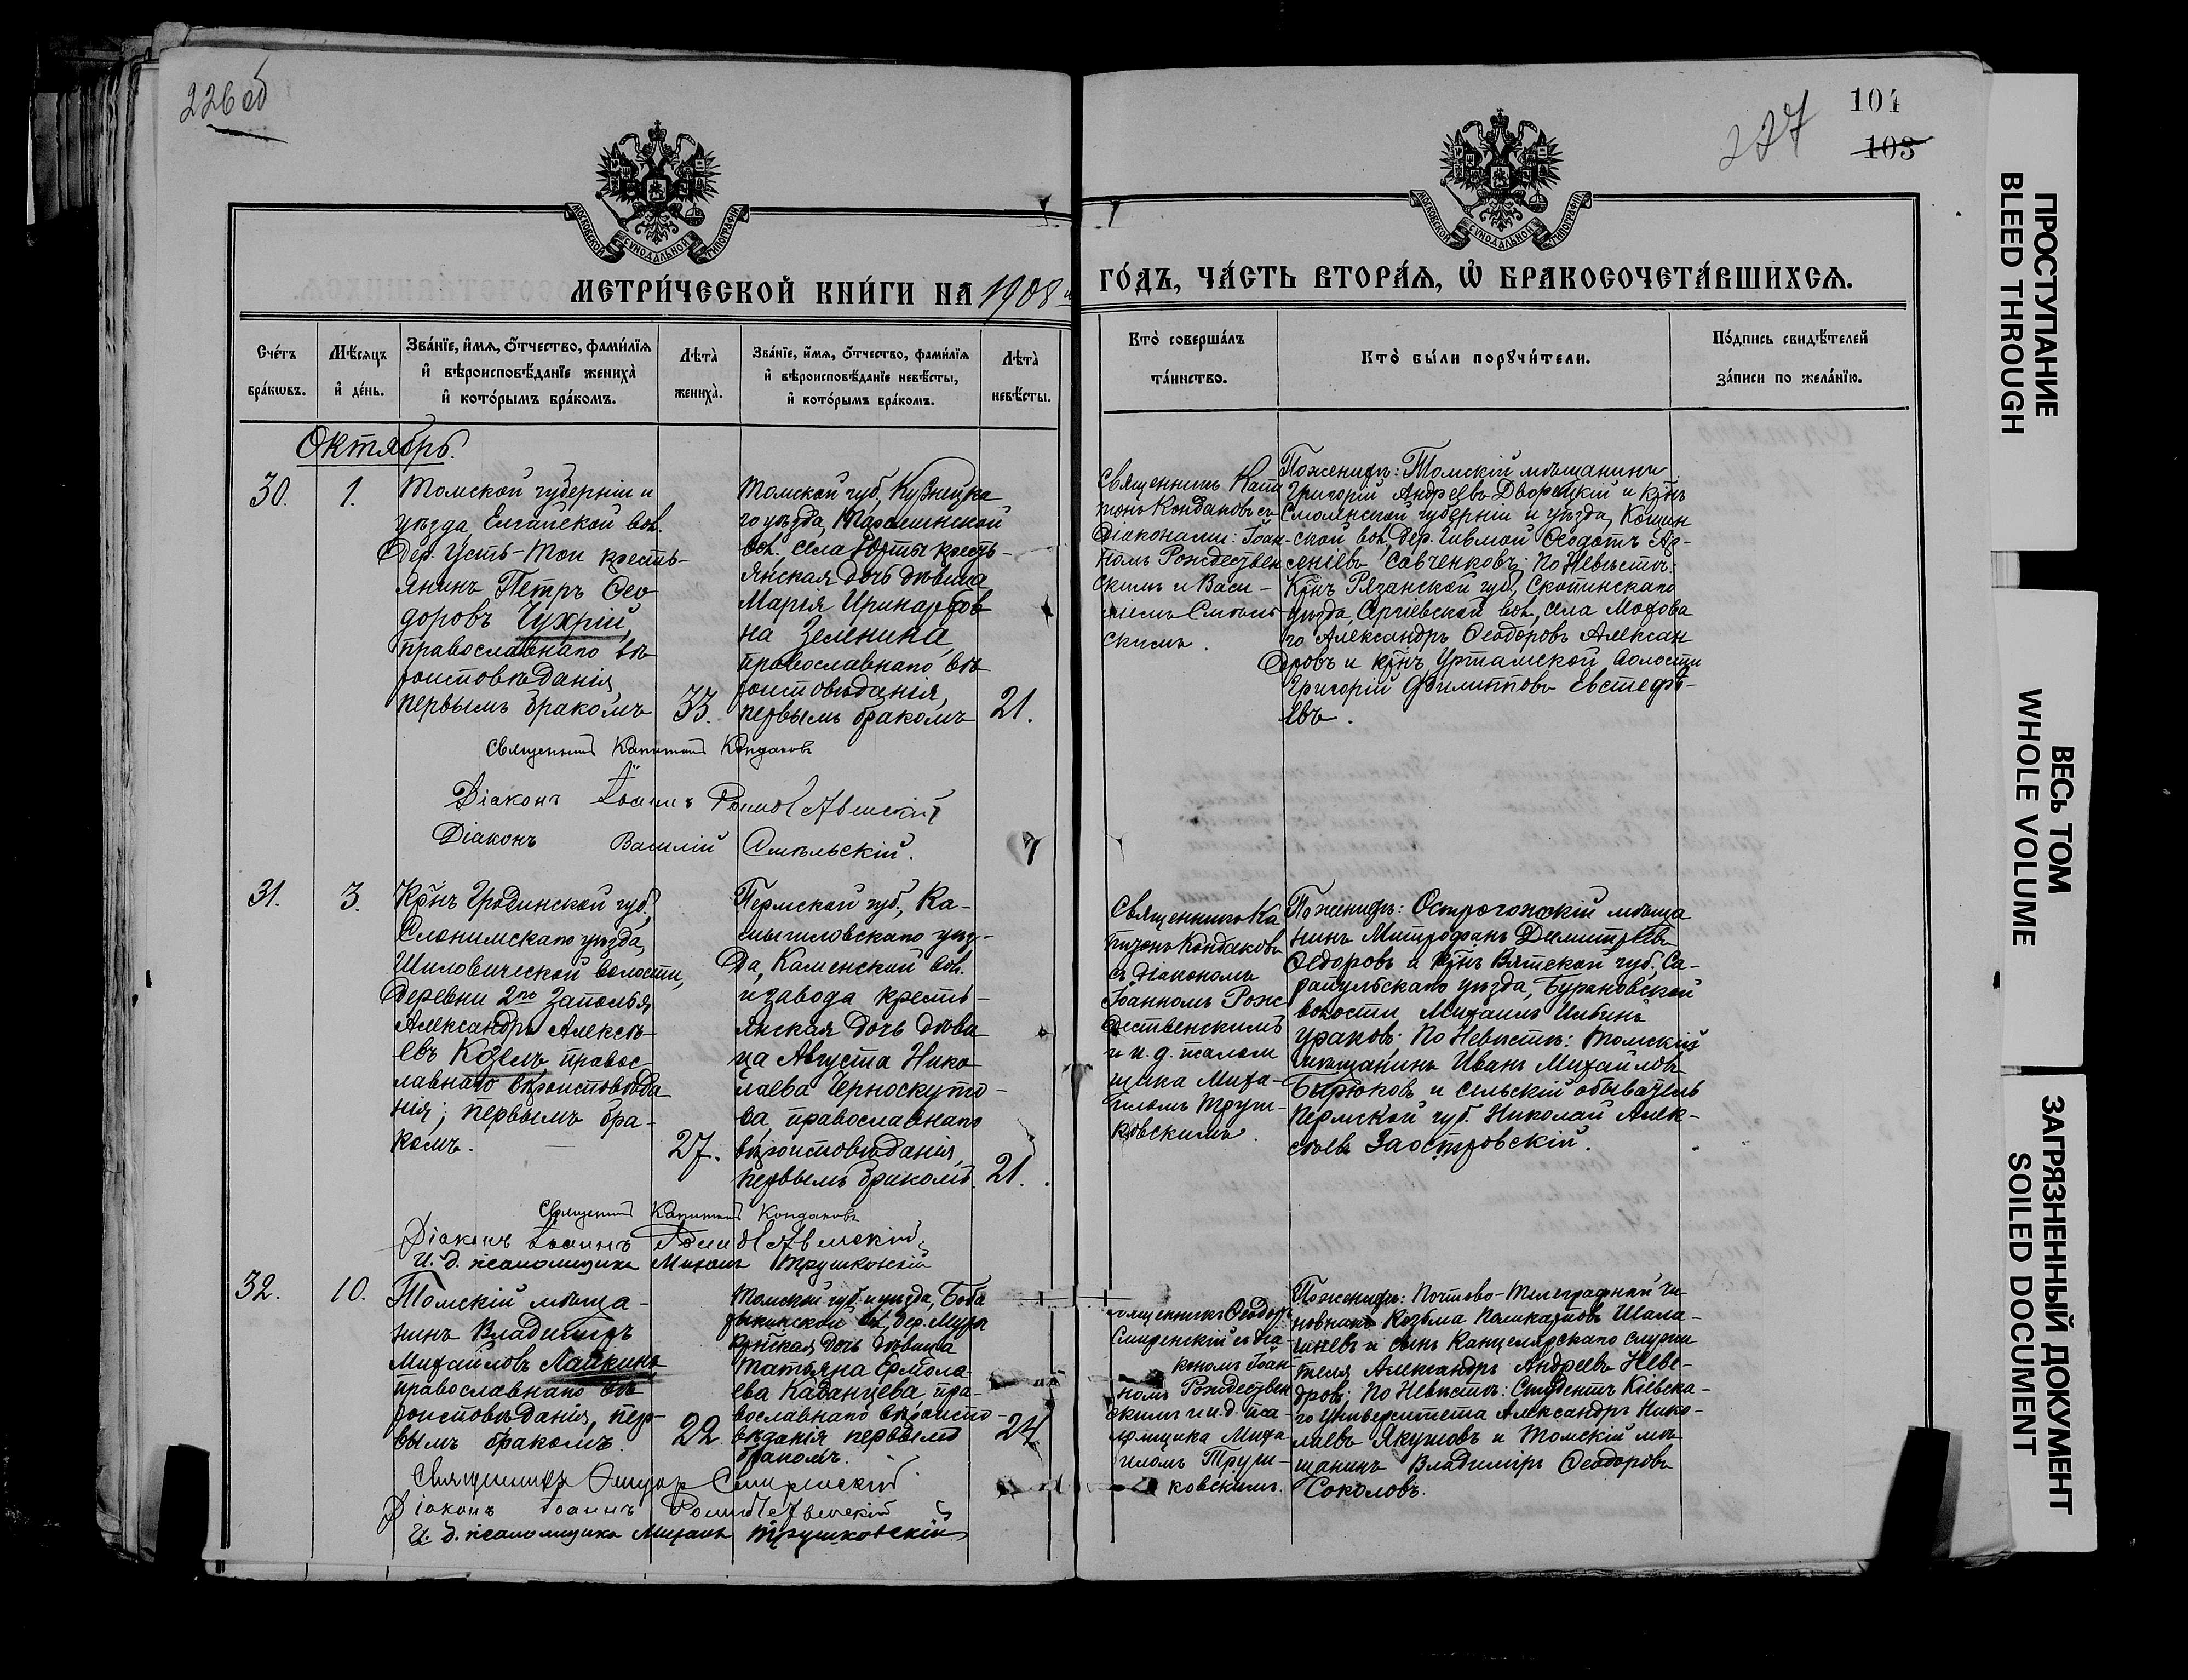 226 об
227
104
103
МОСКОВСКОЙ СѴНОДАЛЬНОЙ ТИПОГРАФІИ
МОСКОВСКОЙ СѴНОДАЛЬНОЙ ТИПОГРАФІИ
МЕТРИ́ЧЕСКОЙ КНИ́ГИ НА 1908 й
ГО́ДЪ, ЧА́СТЬ ВТОРА́Ѧ, Ѡ҆ БРАКОСОЧЕТА́ВШИХСѦ.
Сче́тъ
бра́кѡвъ.
Мѣ́сѧцъ
и҆ де́нь.
Зва́нїе, и҆́мѧ, ѻ҆́тчество, фами́лїѧ
и҆ вѣроисповѣ́данїе жениха̀
и҆ кото́рымъ бра́комъ.
Лѣ́та̀
жениха̀.
Зва́нїе, и҆́мѧ, ѻ҆́тчество, фами́лїѧ
и҆ вѣроисповѣ́данїе невѣ́сты,
и҆ кото́рымъ бра́комъ.
Лѣ́та̀
невѣ́сты.
Кто̀ соверша́лъ
та́инство.
Кто̀ бы́ли порꙋчи́тели.
По́дпись свидѣ́телей
за́писи по жела́нїю.
Октябрь.
30.
1.
Томской губерніи и
уѣзда, Елгайской вол.
дер. Усть-Тои кресть-
янинъ Петръ Ѳео
доровъ Чухрій,
православнаго вѣ
роисповѣданія,
первымъ бракомъ
33.
Томской губ., Кузнецка
го уѣзда,
вол. села кресть-
янская дочь дѣвица
Марія Иринархов
на Зеленина,
православнаго вѣ
роисповѣданія,
первымъ бракомъ
21.
Священникъ Капи
тонъ Кондаковъ съ
діаконами: Іоан-
номъ Рождествен
скимъ и Васи-
ліемъ Смѣль-
скимъ.
По женихѣ: Томскій мѣщанинъ
Григорій Андреевъ Дворецкій и кр̃нъ
Смоленской губерніи и уѣзда, Кощин
ской вол. дер. Ѳеодотъ Ар-
сеніевъ Савченковъ; По Невѣстѣ:
Кр̃нъ Рязанской губ., Скопинскаго
уѣзда, Сергіевской вол., села Мохова
го Александръ Ѳеодоровъ Алексан
дровъ и кр̃нъ Уртамской волости
Григорій Филипповъ Евстефѣ-
евъ.
Священникъ Капитонъ Кондаковъ
Діаконъ Іоаннъ Рождественскій
Діаконъ Василій Смѣльскій.
31.
3.
Кр̃нъ Гродненской губ.,
Слонимскаго уѣзда,
Шиловической волости,
деревни 2го Заполья
Александръ Алексѣ-
евъ Козелъ, правос-
лавнаго вѣроисповѣда
нія; первымъ бра-
комъ.
27.
Пермской губ., Ка-
мышловскаго уѣз-
да, Каменской вол.
и завода кресть-
янская дочь дѣви
ца Августа Нико
лаева Черноскуто-
ва, православнаго
вѣроисповѣданія,
первымъ бракомъ.
21.
Священникъ Ка
питонъ Кондаковъ
съ діакономъ
Іоанномъ Рож
дественскимъ
и и. д. псалом
щика Миха-
иломъ Труш-
ковскимъ.
По женихѣ: Острогожскій мѣща
нинъ Митрофанъ Димитріевъ
Ѳедоровъ и кр̃нъ Вятской губ., Са-
рапульскаго уѣзда, Бурановской
волости Михаилъ Ильинъ
Ураковъ. По Невѣстѣ: Томскій
мѣщанинъ Иванъ Михайловъ
Бирюковъ и сельскій обыватель
Пермской губ. Николай Алек-
сѣевъ Заостровскій.
Священникъ Капитонъ Кондаковъ
Діаконъ Іоаннъ Рождественскій
И. д. псаломщика Михаилъ Трушковскій
32.
10.
Томскій мѣща-
нинъ Владиміръ
Михайловъ Лапкинъ
православнаго вѣ
роисповѣданія, пер-
вымъ бракомъ.
22
Томской губ. и уѣзда,
дочь дѣвица
Татьяна Ермола-
ева Каданцева, пра-
вославнаго вѣроиспо-
вѣданія первымъ
бракомъ.
24
Священникъ Ѳеодоръ
Смиренскій съ діа-
кономъ Іоан-
номъ Рождествен
скимъ и и. д. пса-
ломщика Миха
иломъ Труш-
ковскимъ.
По женихѣ: Почтово-Телеграфный Чи
новникъ Козьма Поликарповъ Шала-
гиневъ и сынъ Канцелярскаго служи
теля Александръ Андреевъ Неве-
дровъ; По Невѣстѣ: Студентъ Кіевска-
го Университета Александръ Нико-
лаевъ Якушовъ и Томскій мѣ
щанинъ Владиміръ Ѳеодоровъ
Соколовъ.
Священникъ Ѳеодоръ Смиренскій
Діаконъ Іоаннъ Рождественскій
И. д. псаломщика Михаилъ Трушковскій
ПРОСТУПАНИЕ
BLEED THROUGH
ВЕСЬ ТОМ
WHOLE VOLUME
ЗАГРЯЗНЕННЫЙ ДОКУМЕНТ
SOILED DOCUMENT